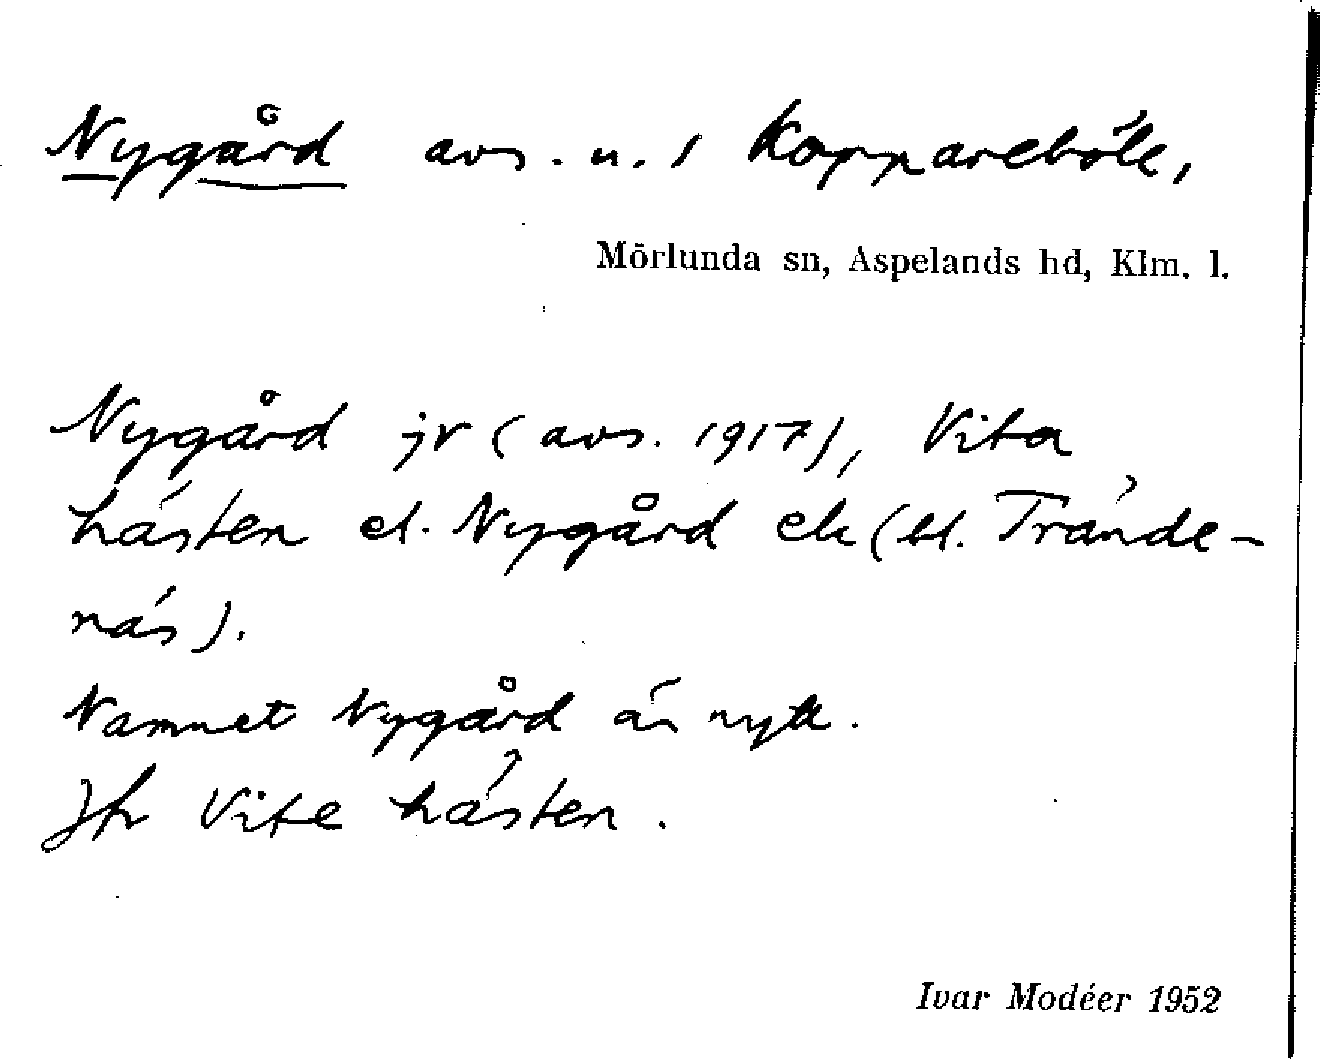 Nygård avs. u. / Koppareböle,
Mörlunda sn, Aspelands hd, Klm. l.
Nygård jr (avs. 1917), Vita
hästen el. Nygård ek (bl. Trände-
näs).
Namnet Nygård är nytt.
Jfr Vite hästen.
Ivar Modéer 1952